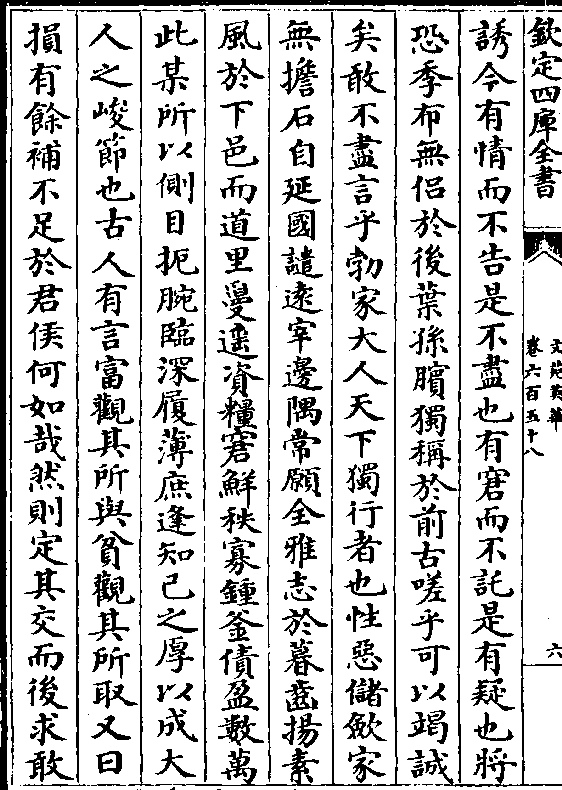 欽定四庫全書
文苑英華
卷六百五十八
六
誘今有情而不告是不盡也有窘而不託是有疑也將
恐季布無侶於後葉孫臏獨稱於前古嗟乎可以竭誠
矣敢不盡言乎勃家大人天下獨行者也性惡儲斂家
無擔石自延國譴遠宰邊隅常願全雅志於暮齒揚素
風於下邑而道里敻遥資糧窘鮮秩寡鍾釜債盈數萬
此某所以側目扼腕臨深履薄庶逢知己之厚以成大
人之峻節也古人有言富觀其所與貧觀其所取又曰
損有餘補不足於君侯何如哉然則定其交而後求敢